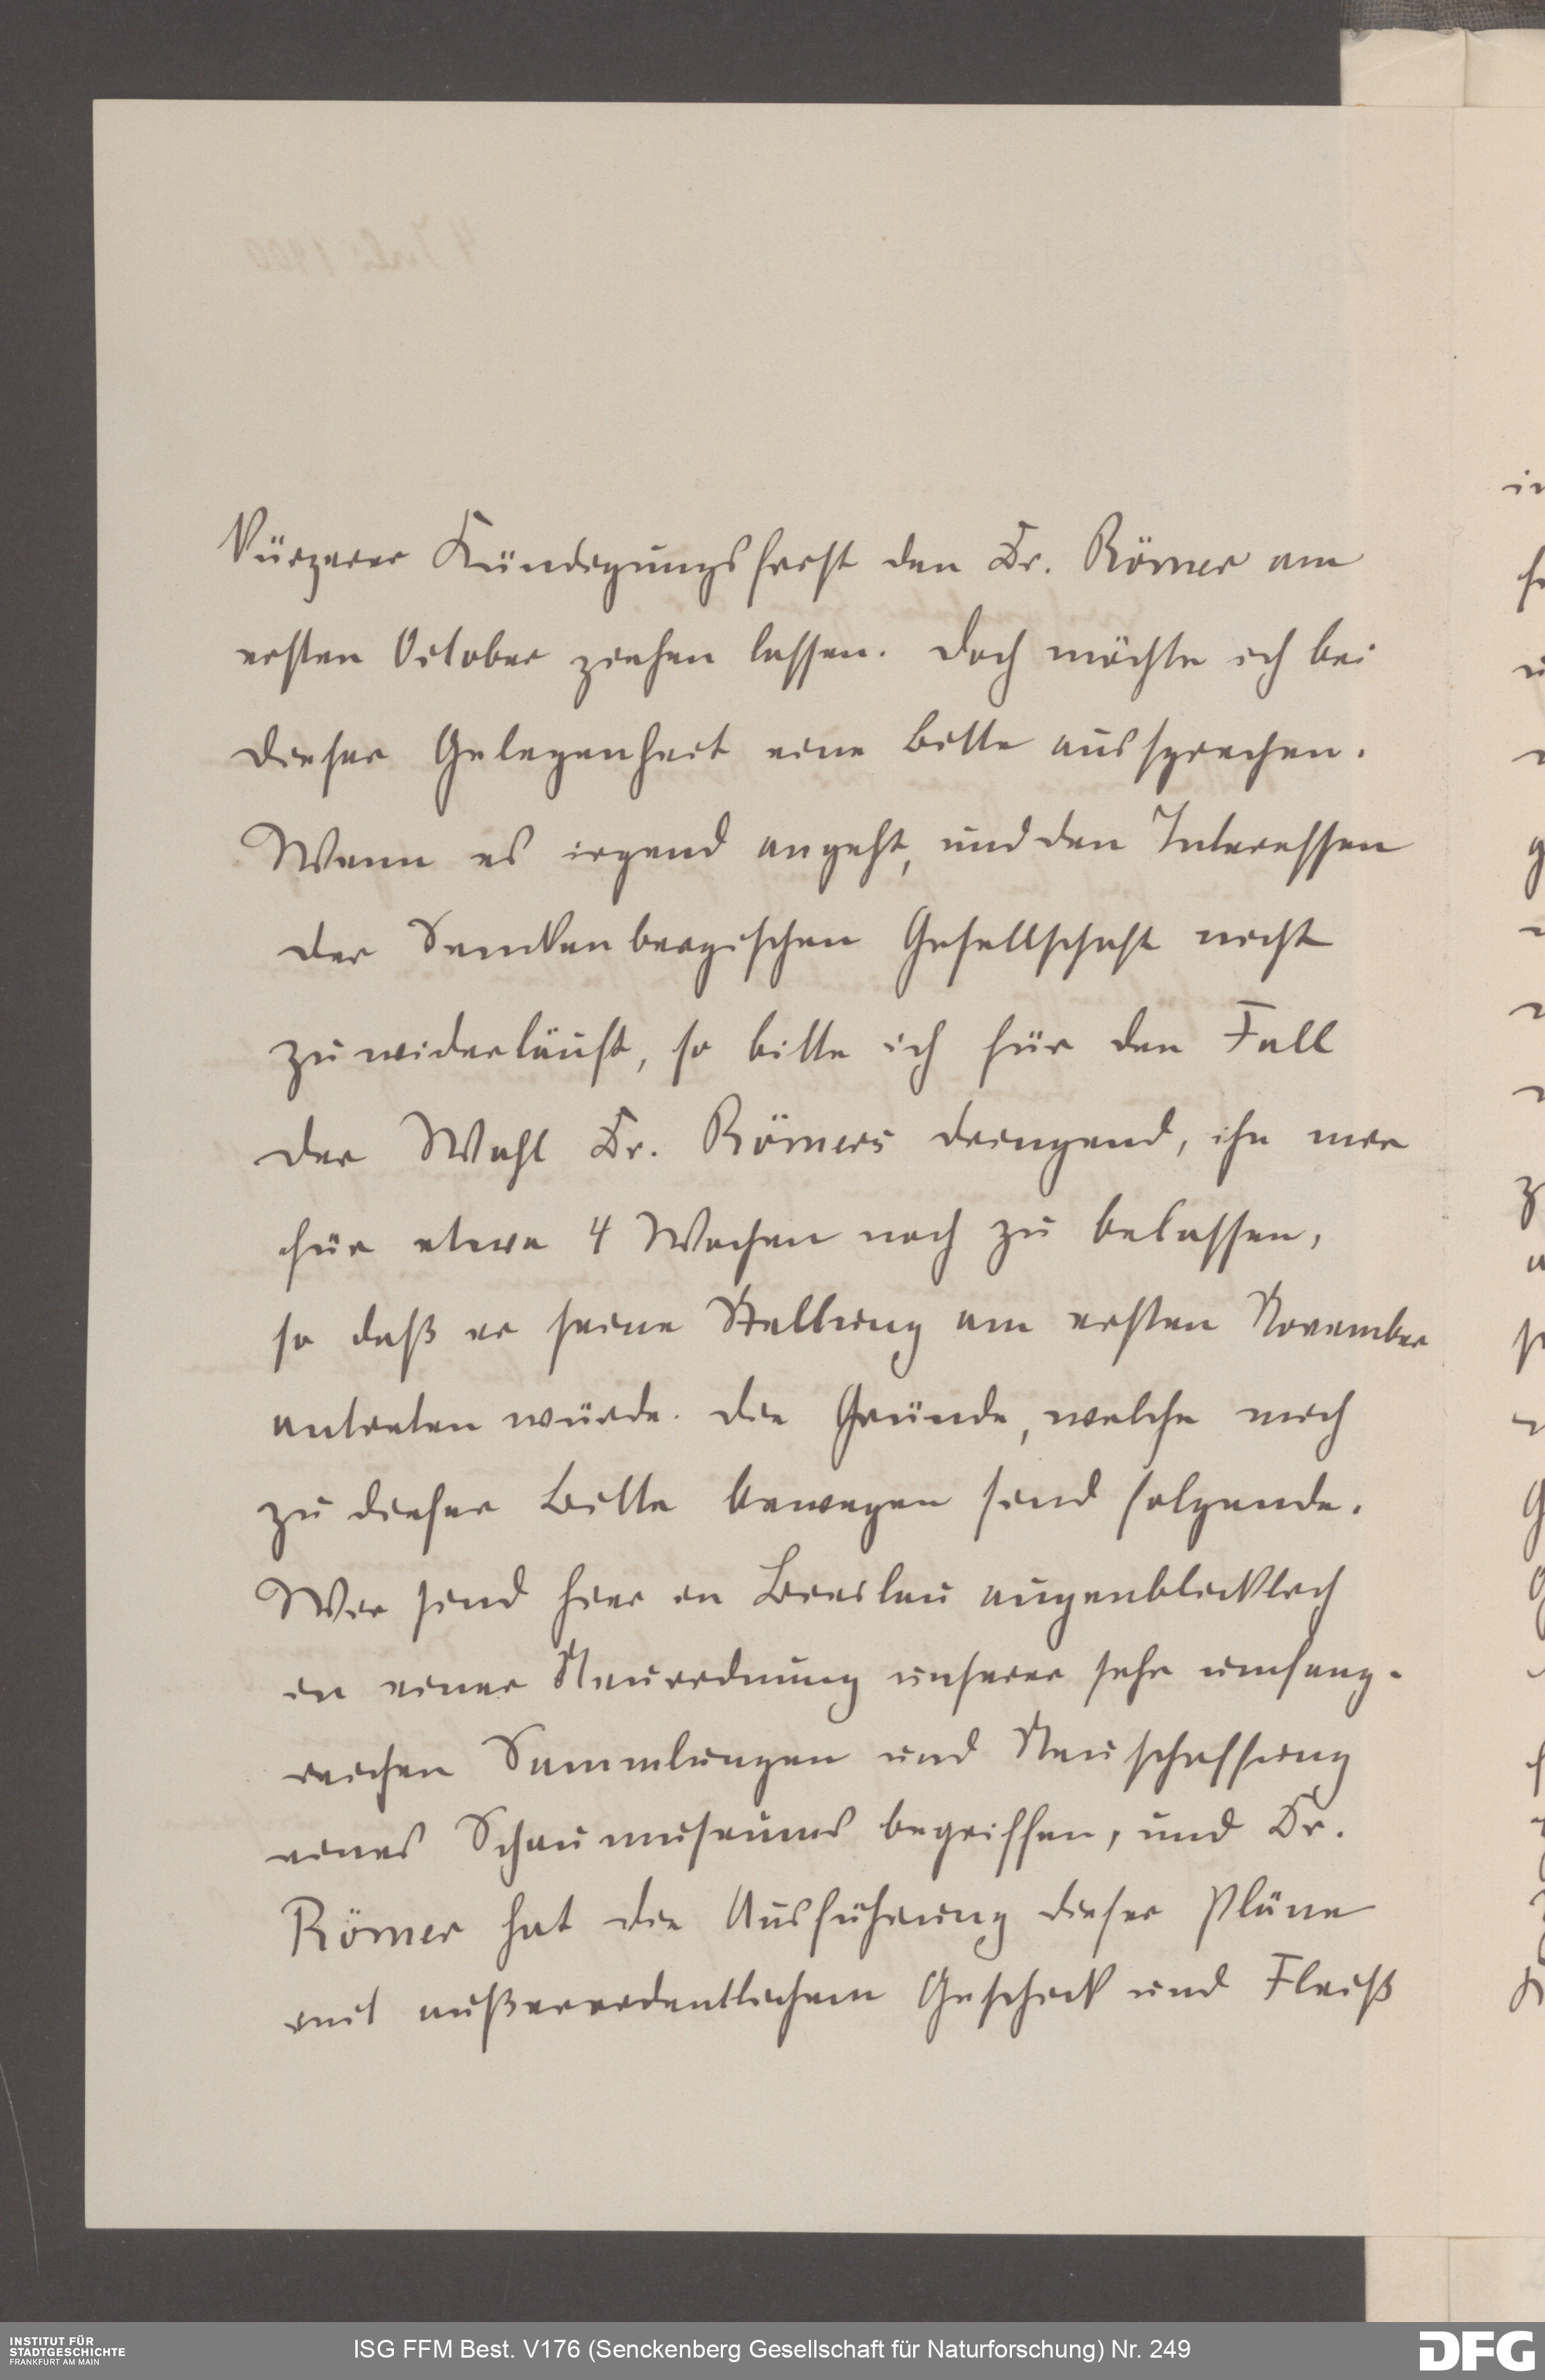 kürzerer Kündigungsfrist den Dr. Römer am
ersten October ziehen lassen. Doch möchte ich bei
dieser Gelegenheit eine Bitte aussprechen.
Wenn es irgend angeht, und den Interessen
der Senckenbergischen Gesellschaft nicht
zuwiderläuft, so bitte ich für den Fall
der Wahl Dr. Römers dringend, ihn mir
für etwa 4 Wochen noch zu belassen,
so daß er seine Stellung am ersten November
antreten würde. Die Gründe, welche mich
zu dieser Bitte bewegen sind folgende.
Wir sind hier in Breslau augenblicklich
in einer Neuordnung unserer sehr umfang-
reichen Sammlungen und Neuschaffung
eines Schaumuseums begriffen, und Dr.
Römer hat die Ausführung dieser Pläne
mit außerordentlichem Geschick und Fleiß
INSTITUT FÜR
STADTGESCHICHTE
FRANKFURT AM MAIN
ISG FFM Best. V176 (Senckenberg Gesellschaft für Naturforschung) Nr. 249
DFG